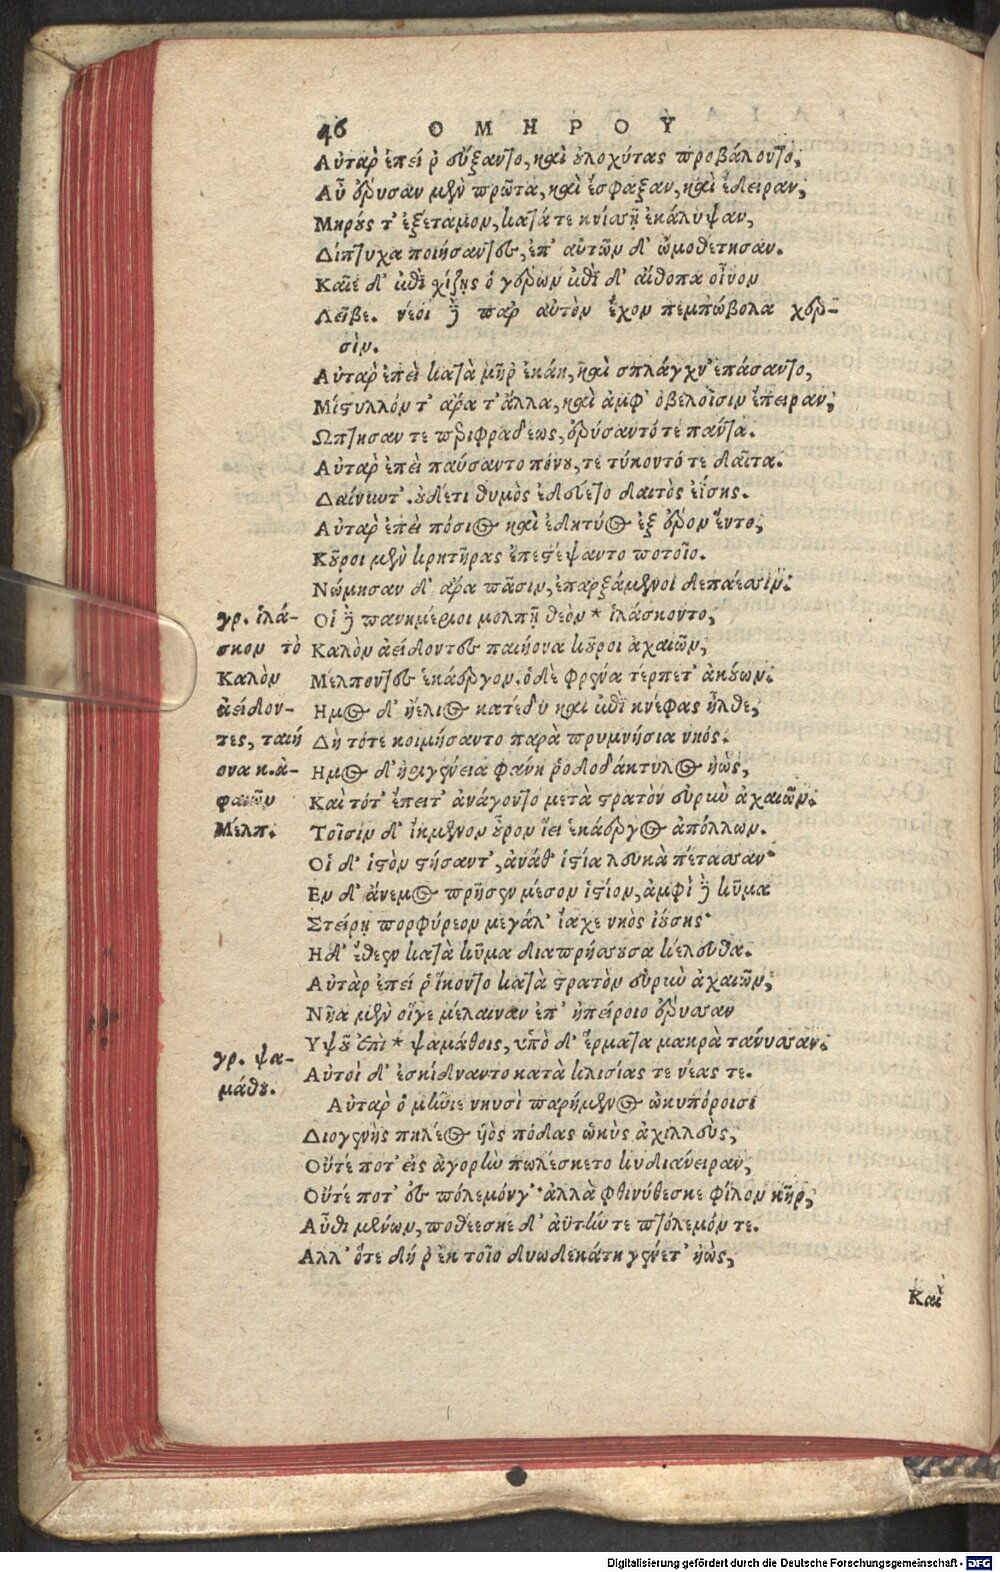 46 ΟΜΗΡΟΥ
Αὐτὰρ ἐπεί ῥ' εὔξαντο, καὶ οὐλοχύτας προβάλοντο,
Αὖ ἔρυσαν μὲν πρῶτα, καὶ ἔσφαξαν, καὶ ἔδειραν,
Μηρούς τ' ἐξέταμον, κατά τε κνίσσῃ ἐκάλυψαν,
Δίπτυχα ποιήσαντες, ἐπ' αὐτῶν δ' ὠμοθέτησαν.
Καῖε δ' ἐπὶ χίζῃς ὁ γέρων ἐπὶ δ' αἴθοπα οἶνον
Λεῖβε. νέοι δὲ παρ' αὐτὸν ἔχον πεμπώβολα χερ-
σὶν.
Αὐτὰρ ἐπεὶ κατὰ μῆρ' ἐκάη, καὶ σπλάγχν' ἐπάσαντο,
Μίστυλλόν τ' ἄρα τ' ἄλλα, καὶ ἀμφ' ὀβελοῖσιν ἔπειραν,
Ωπτησαν τε περιφραδέως, ἐρύσαντό τε πάντα.
Αὐτὰρ ἐπεὶ παύσαντο πόνου, τε τύκοντό τε δαῖτα.
Δαίνυντ'. οὐδέτι θυμὸς ἐδεύετο δαιτὸς ἐΐσης.
Αὐτὰρ ἐπεὶ πόσιος καὶ ἐδητύος ἐξ ἔρον ἕντο,
Κοῦροι μὲν κρητῆρας ἐπεστέψαντο ποτοῖο.
Νώμησαν δ' ἄρα πᾶσιν, ἐπαρξάμενοι δεπάεσσιν.
Οἱ δὲ πανημέριοι μολπῇ θεὸν * ἱλάσκοντο,
Καλὸν ἀείδοντες παιήονα κοῦροι ἀχαιῶν,
Μέλποντες ἑκάεργον. ὁ δὲ φρένα τέρπετ' ἀκούων.
Ημος δ' ἠέλιος κατέδυ καὶ ἐπὶ κνέφας ἦλθε,
Δὴ τότε κοιμήσαντο παρὰ πρυμνήσια νηός.
Ημος δ' ἠριγένεια φάνη ῥοδοδάκτυλος ἠὼς,
Καὶ τότ' ἔπειτ' ἀνάγοντο μετὰ στρατὸν εὐρὺν ἀχαιῶν.
Τοῖσιν δ' ἴκμενον οὖρον ἵει ἑκάεργος ἀπόλλων.
Οἱ δ' ἱστὸν στήσαντ', ἀνάθ' ἱστία λευκὰ πέτασσαν·
Εν δ' ἄνεμος πρῆσεν μέσον ἱστίον, ἀμφὶ δὲ κῦμα
Στείρῃ πορφύρεον μεγάλ' ἴαχε νηὸς ἰούσης·
Η δ' ἔθεεν κατὰ κῦμα διαπρήσσουσα κέλευθα.
Αὐτὰρ ἐπεί ῥ' ἵκοντο κατὰ στρατὸν εὐρὺν ἀχαιῶν,
Νῆα μὲν οἵγε μέλαιναν ἐπ' ἠπείροιο ἔρυσσαν
Υψοῦ ἐπὶ * ψαμάθοις, ὑπὸ δ' ἕρματα μακρὰ τάνυσσαν.
Αὐτοὶ δ' ἐσκίδναντο κατὰ κλισίας τε νέας τε.
Αὐτὰρ ὁ μήνιε νηυσὶ παρήμενος ὠκυπόροισι
Διογενὴς πηλέος υἱὸς πόδας ὠκὺς ἀχιλλεὺς,
Οὔτέ ποτ' εἰς ἀγορὴν πωλέσκετο κυδιάνειραν,
Οὔτέ ποτ' ἐς πόλεμόνγ'· ἀλλὰ φθινύθεσκε φίλον κῆρ,
Αὖθι μένων, ποθέεσκε δ' ἀϋτήν τε πτόλεμόν τε.
Αλλ' ὅτε δή ῥ' ἐκ τοῖο δυωδεκάτη γένετ' ἠὼς,
Καὶ
γρ. ἱλά-
σκον τὸ
Καλὸν
ἀείδον-
τες, ταιή
ονα κ.ἀ-
φαιῶν
Μέλπ.
γρ. ψα-
μάθου.
Digitalisierung gefördert durch die Deutsche Forschungsgemeinschaft - DFG